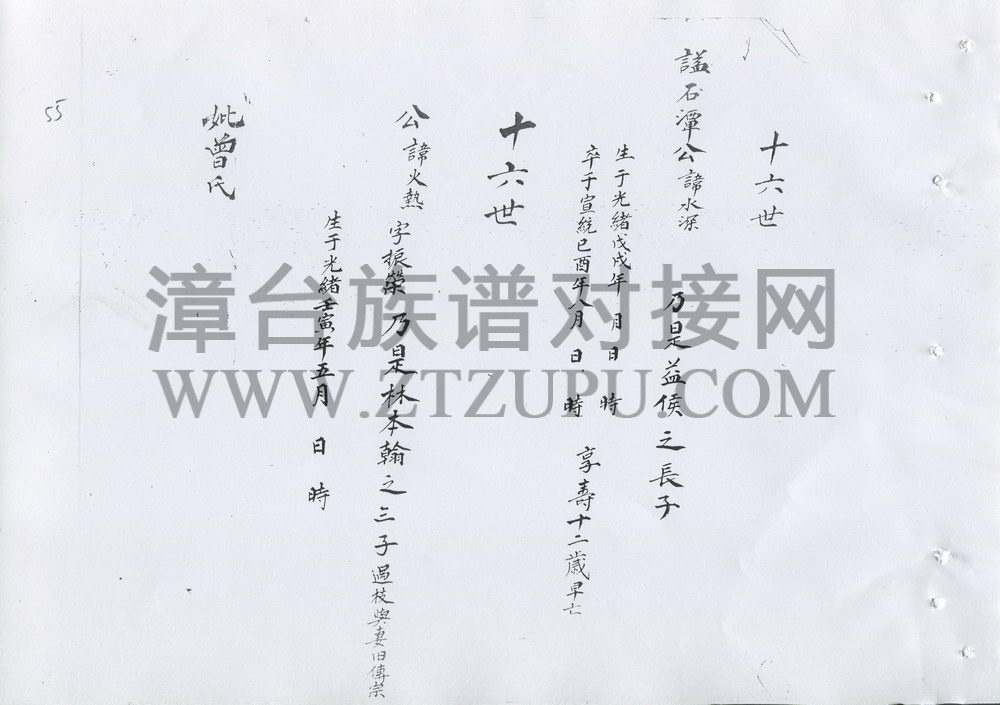 十六世
謚石潭公諱水深 乃是益侯之長子
生于光緒戊戌年 月 日 時
卒于宣統己酉年八月 日 時 享壽十二歲早亡
十六世
公諱火熱 字振榮 乃是林本翰之三子 過枝與妻旧傳崇
生于光緒壬寅年五月 日 時
妣曾氏
55
漳台族谱对接网
WWW.ZTZUPU.COM